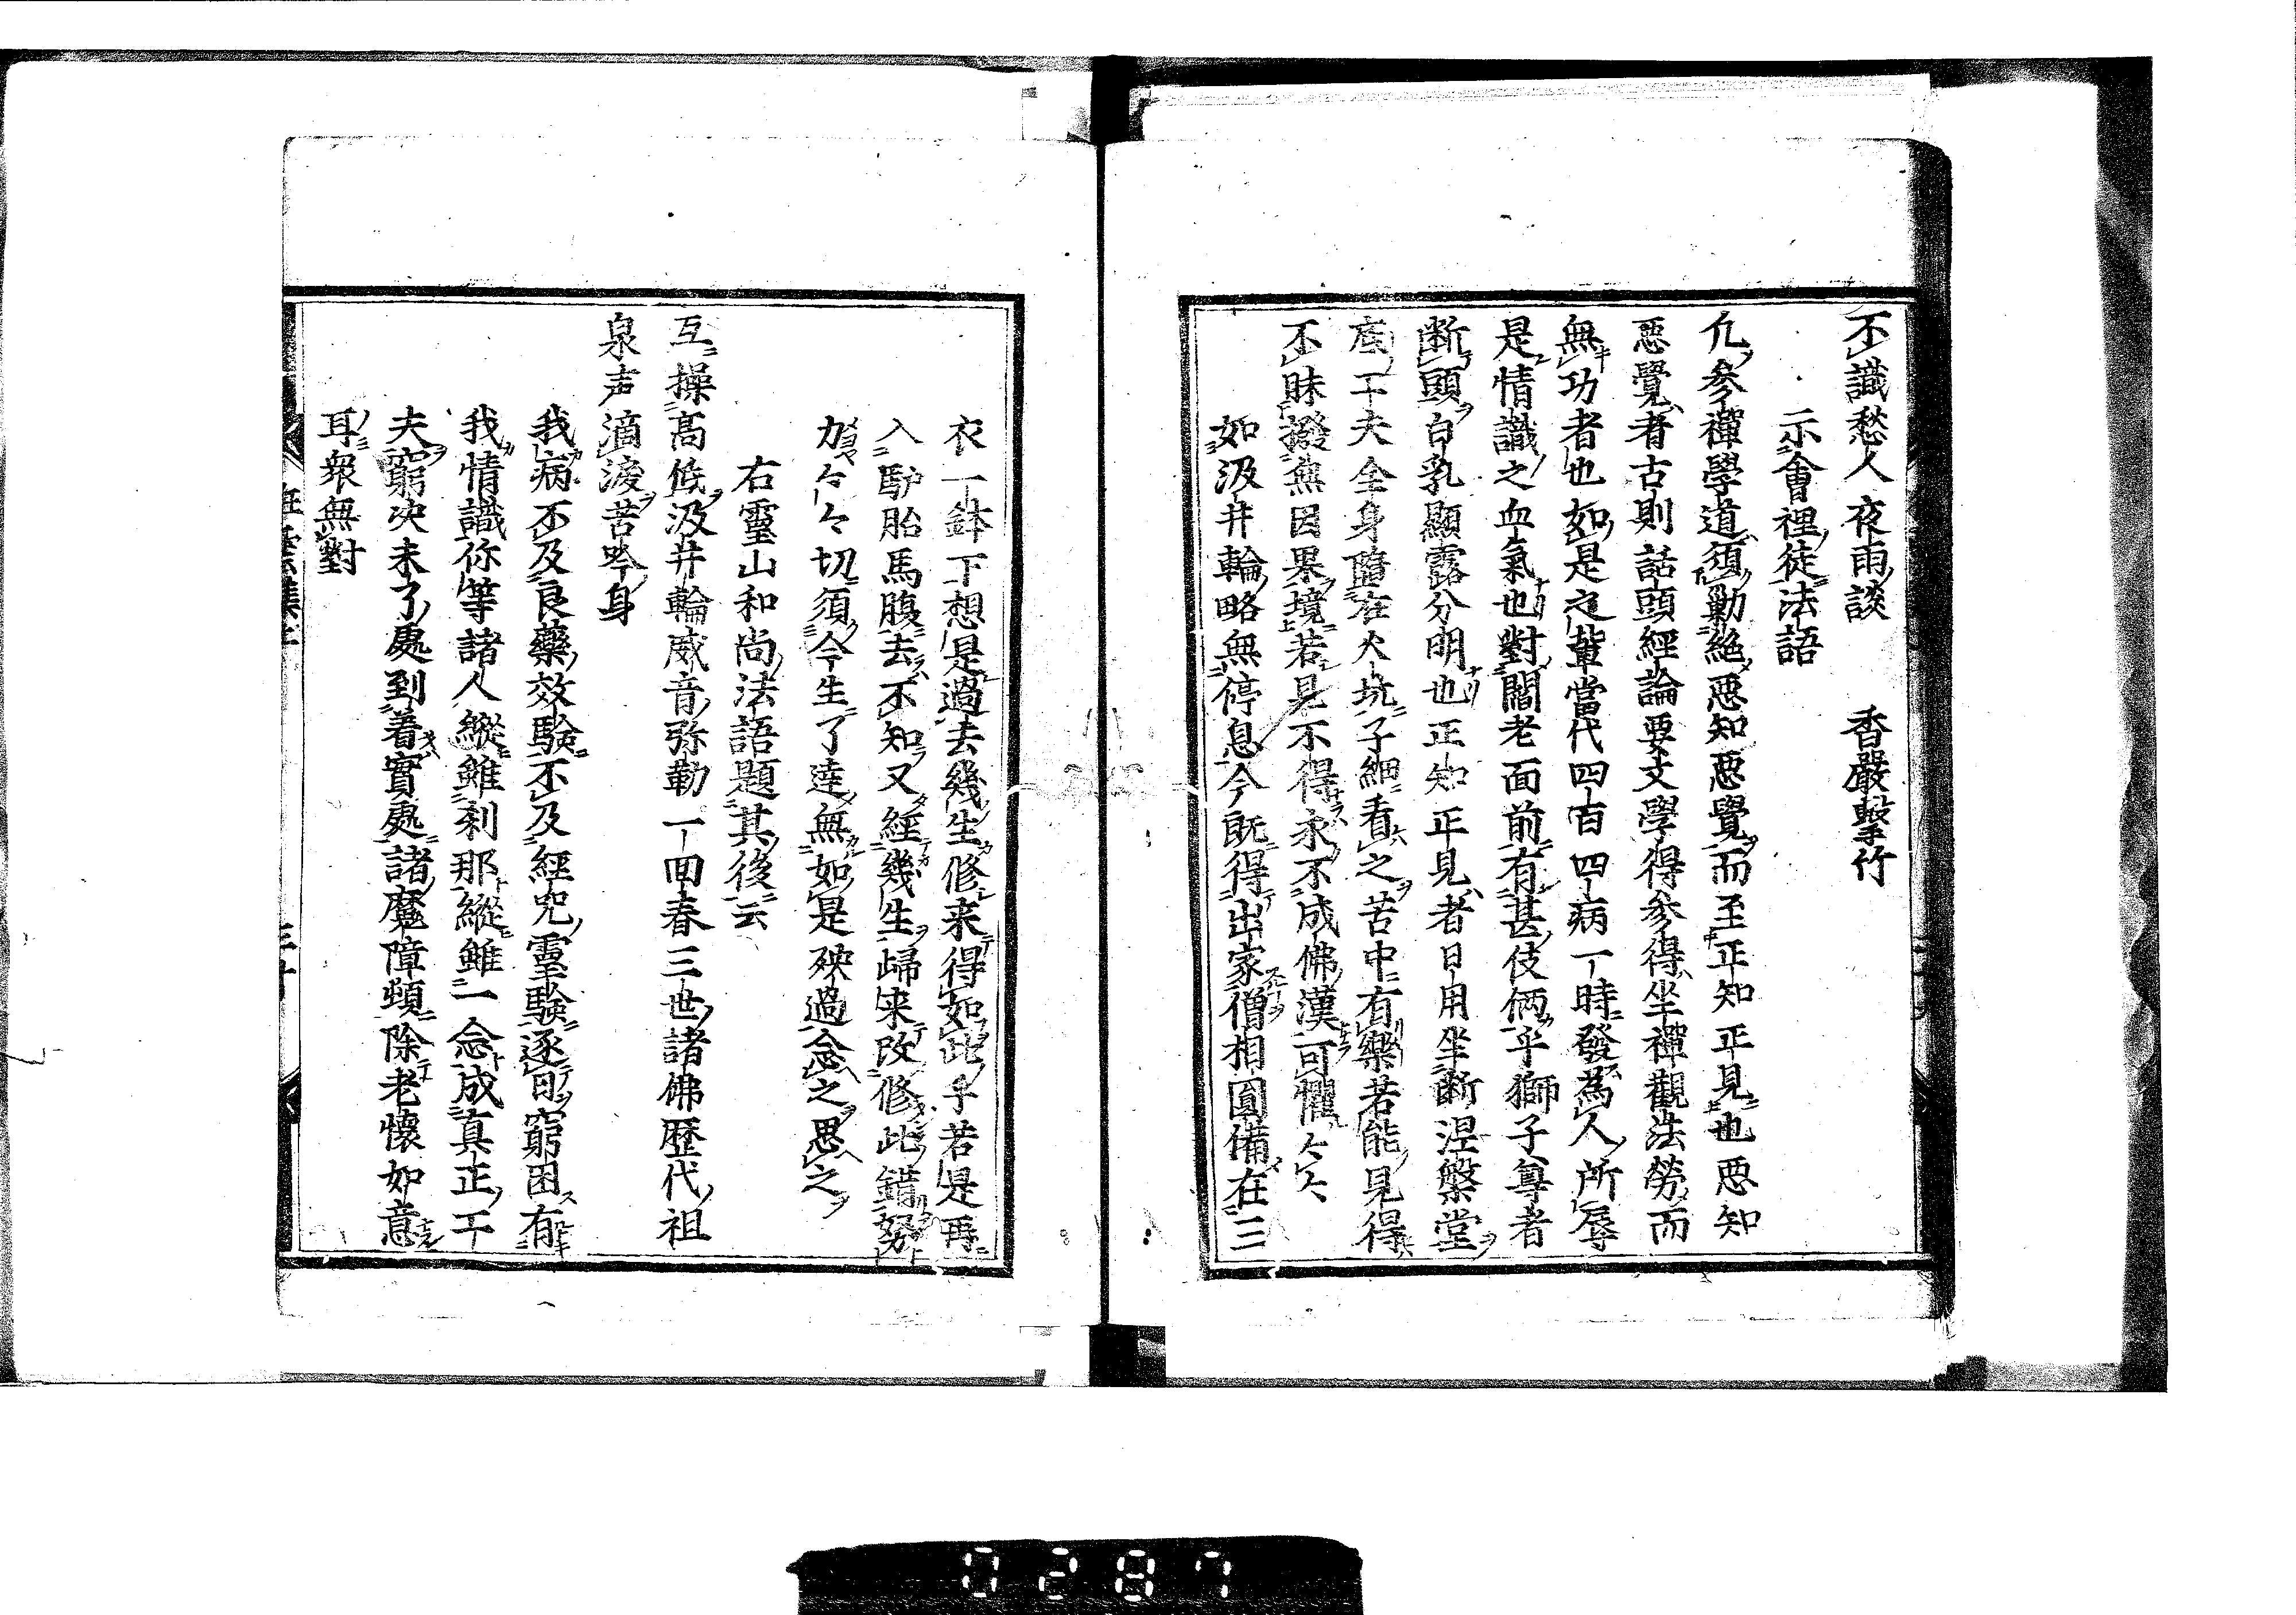 不識愁人夜雨談　　香嚴擊竹
示會裡徒法語
凢參禪學道須勦絶惡知惡覺而至正知正見也惡知
惡覺者古則話頭經論要文學得參得坐禪觀法勞而
無功者也如是之輩當代四百四病一時發為人所辱
是情識之血氣也對閻老面前有甚伎倆乎獅子尊者
断頭白乳顯露分明也正知正見者日用坐断涅槃堂
底工夫全身墮在火坑子細看之苦中有樂若能見得
不昧撥無因果境若是不得永不成佛漢可懼々々
如汲井輪略無停息今既得出家僧相圓備在三
衣一鉢下想是過去幾生修来得如此乎若是再
入馿胎馬腹去不知又經幾生歸来改修此錯努
力々々切須今生了達無如是殃過念之思之
右靈山和尚法語題其後云
互操髙低汲井輪威音弥勒一回春三世諸佛歴代祖
泉声滴淚苦吟身
我病不及良藥效驗不及經呪靈驗逐日窮困有
我情識你等諸人縱雖刹那縱雖一念成真正工
夫窮决未了處到着實處諸魔障頓除老懷如意
耳衆無對